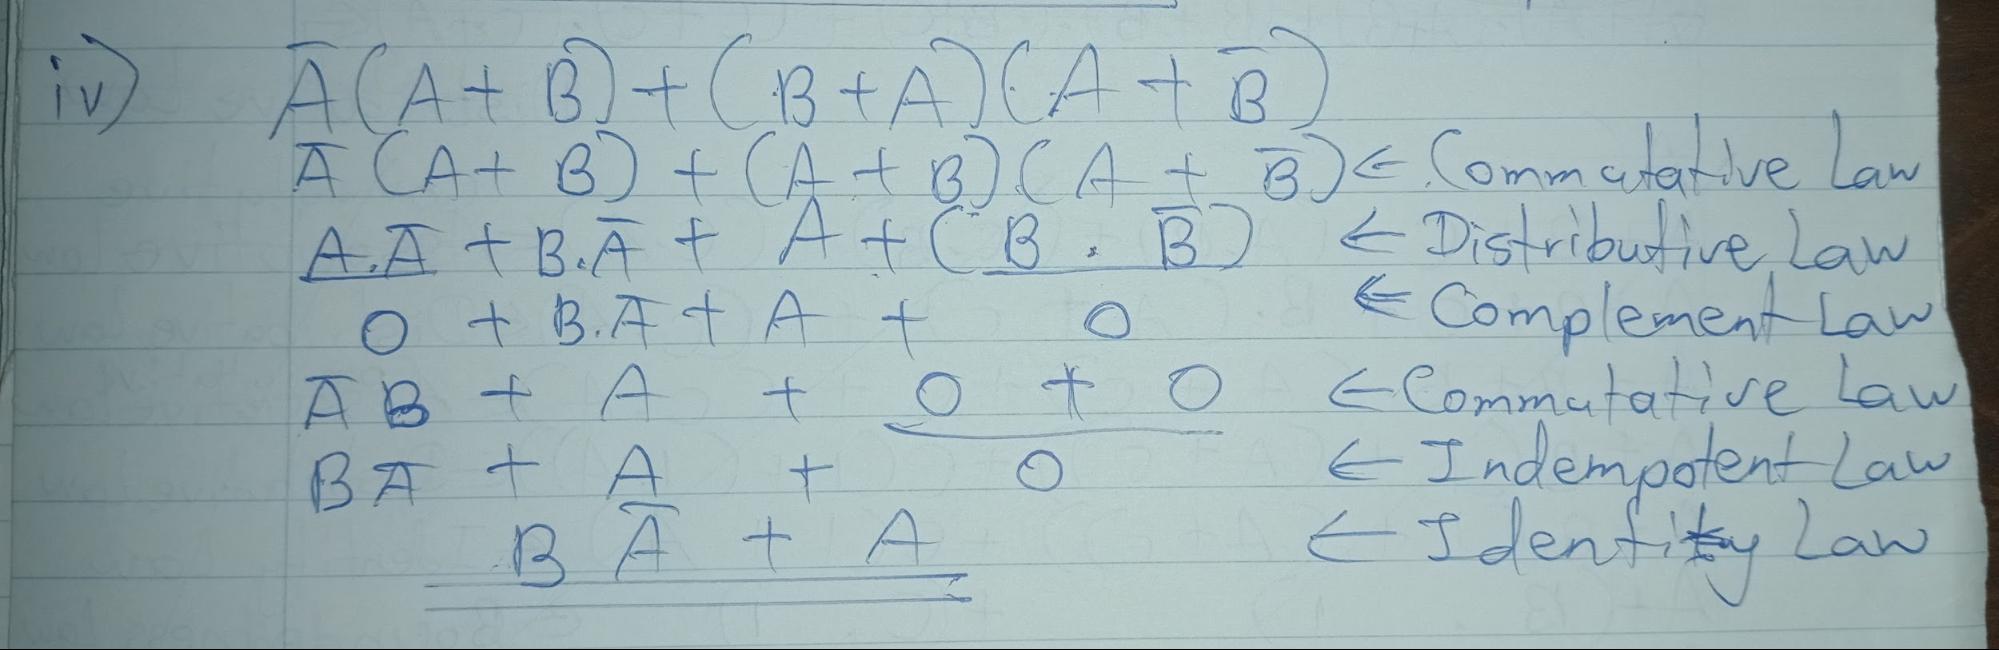 iv) A̅(A+B)+(B+A)(A+B̅)
A̅(A+B)+(A+B)(A+B̅) ← Commutative Law
A.A̅ + B.A̅ + A + (B.B̅) ← Distributive Law
0 + B.A̅ + A + 0 ← Complement Law
A̅B + A + 0 + 0 ← Commutative Law
BA̅ + A + 0 ← Indempotent Law
BA̅ + A ← Identity Law